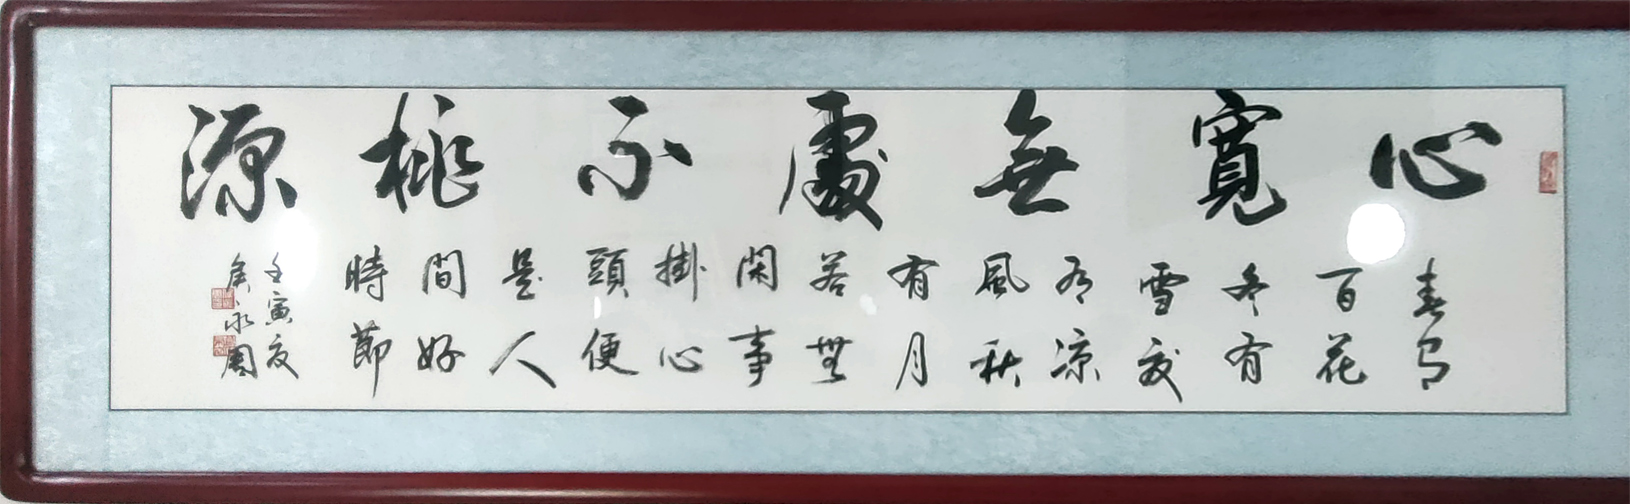 心寬無處不桃源
春有
百花
冬有
雪夏
有凉
風秋
有月
若無
閑事
掛心
頭便
是人
間好
時節
壬寅夏
永周